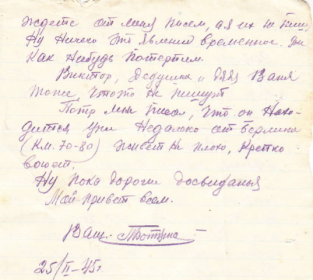 ждете от меня писем, а я их не пишу
Ну ничего это явление временное. Уж
как нибудь потерпим.
Виктор, Дедушка и дядя Ваня
тоже что-то не пишут
Петр мне писал, что он нахо-
дится уже недалеко от Берлина
(км. 70-80) живет не плохо, крепко
воюет.
Ну пока дорогие досвиданья
Мой привет всем.
Ваш
25/II-45г.